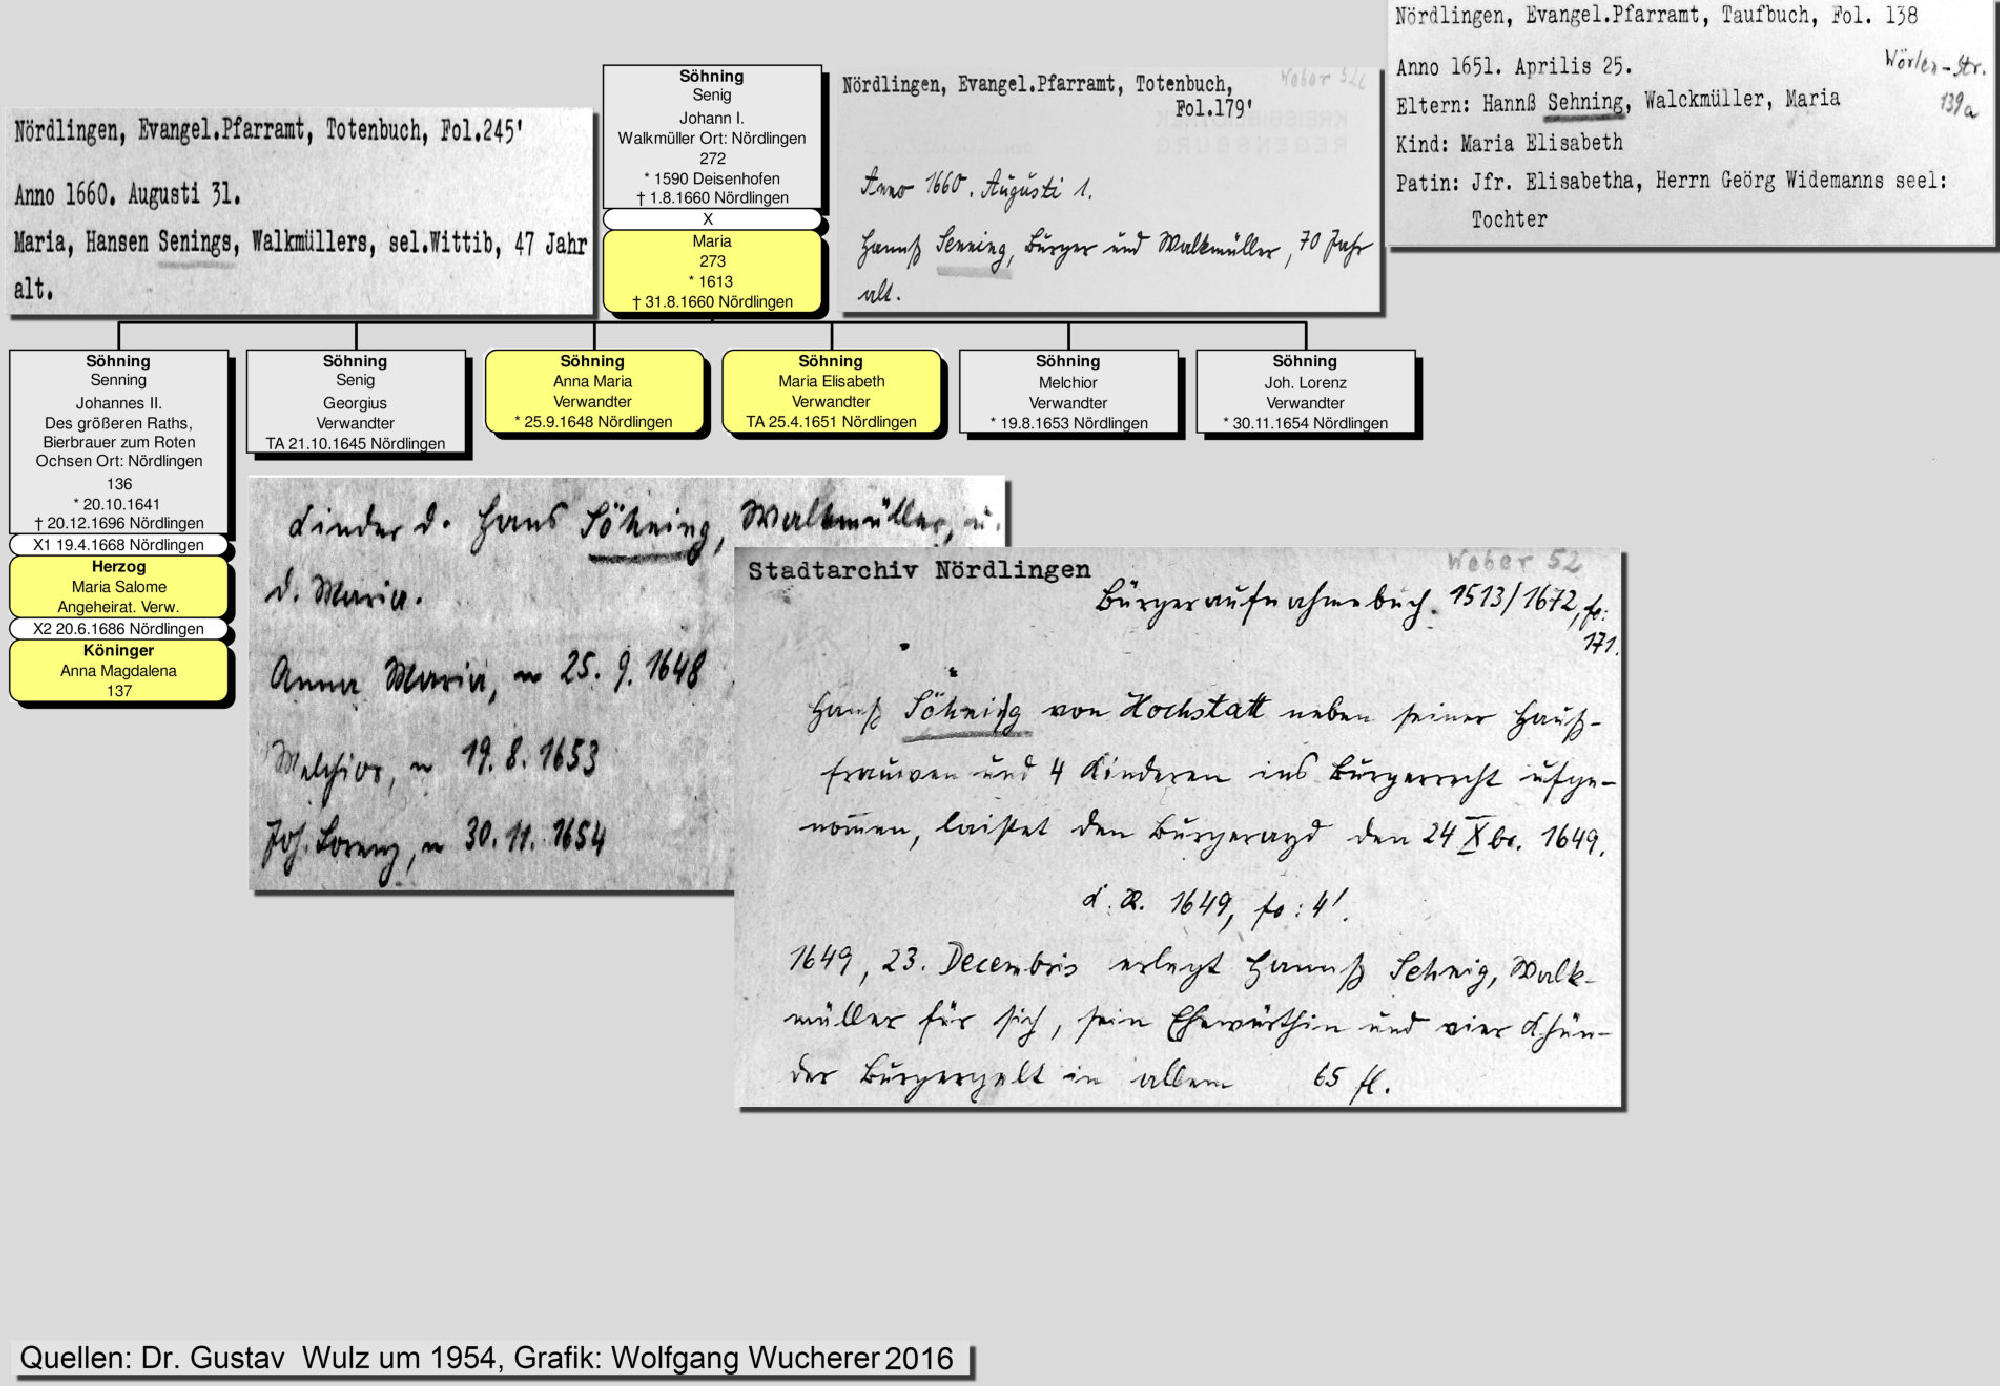 Nördlingen, Evangel.Pfarramt, Totenbuch, Fol.245'
Anno 1660. Augusti 31.
Maria, Hansen Senings, Walkmüllers, sel.Wittib, 47 Jahr
alt.
Söhning
Senig
Johann I.
Walkmüller Ort: Nördlingen
272
* 1590 Deisenhofen
† 1.8.1660 Nördlingen
X
Maria
273
* 1613
† 31.8.1660 Nördlingen
Weber 52
Nördlingen, Evangel.Pfarramt, Totenbuch,
Fol.179'
KREISBIBLIOTHEK
REGENSBURG
Anno 1660. Augusti 1.
Hannß Senning, Bürger und Walkmüller, 70 Jahr
alt.
Nördlingen, Evangel.Pfarramt, Taufbuch, Fol. 138
Wörlen-Str.
139a
Anno 1651. Aprilis 25.
Eltern: Hannß Sehning, Walckmüller, Maria
Kind: Maria Elisabeth
Patin: Jfr. Elisabetha, Herrn Geörg Widemanns seel:
Tochter
Söhning
Senning
Johannes II.
Des größeren Raths,
Bierbrauer zum Roten
Ochsen Ort: Nördlingen
136
* 20.10.1641
† 20.12.1696 Nördlingen
X1 19.4.1668 Nördlingen
Herzog
Maria Salome
Angeheirat. Verw.
X2 20.6.1686 Nördlingen
Köninger
Anna Magdalena
137
Söhning
Senig
Georgius
Verwandter
TA 21.10.1645 Nördlingen
Söhning
Anna Maria
Verwandter
* 25.9.1648 Nördlingen
Söhning
Maria Elisabeth
Verwandter
TA 25.4.1651 Nördlingen
Söhning
Melchior
Verwandter
* 19.8.1653 Nördlingen
Söhning
Joh. Lorenz
Verwandter
* 30.11.1654 Nördlingen
Kinder d. Hans Söhning, Walkmüller, u.
d. Maria.
Anna Maria, 25. 9. 1648
Melchior, 19. 8. 1653
Joh. Lorenz, 30. 11. 1654
Stadtarchiv Nördlingen
Weber 52
Bürgeraufnahmebuch. 1513/1672, fo:
171.
Hanß Söhning von Hochstatt neben seiner Hauß-
frauwen und 4 Kinderen ins Burgerrecht ufge-
nommen, laistet den Burgerayd den 24 Xbr. 1649.
K. R. 1649, fo: 4'.
1649, 23. Decembris erlegt Hannß Sehnig, Walk-
müller für sich, sein Ehewürthin und vier Khün-
der Burgergelt in allem 65 fl.
Quellen: Dr. Gustav Wulz um 1954, Grafik: Wolfgang Wucherer 2016